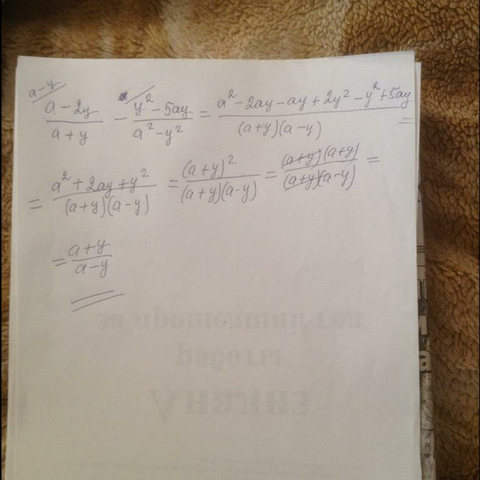 a-y
(a-2y)/(a+y) - (y²-5ay)/(a²-y²) = (a²-2ay-ay+2y²-y²+5ay)/((a+y)(a-y)) =
= (a²+2ay+y²)/((a+y)(a-y)) = (a+y)²/((a+y)(a-y)) = ((a+y)(a+y))/((a+y)(a-y)) =
= (a+y)/(a-y)